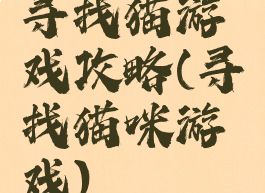 寻找猫游
戏攻略(寻
找猫咪游
戏)